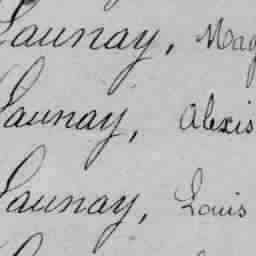 Launay, Mag
Launay, Alexis
Launay, Louis